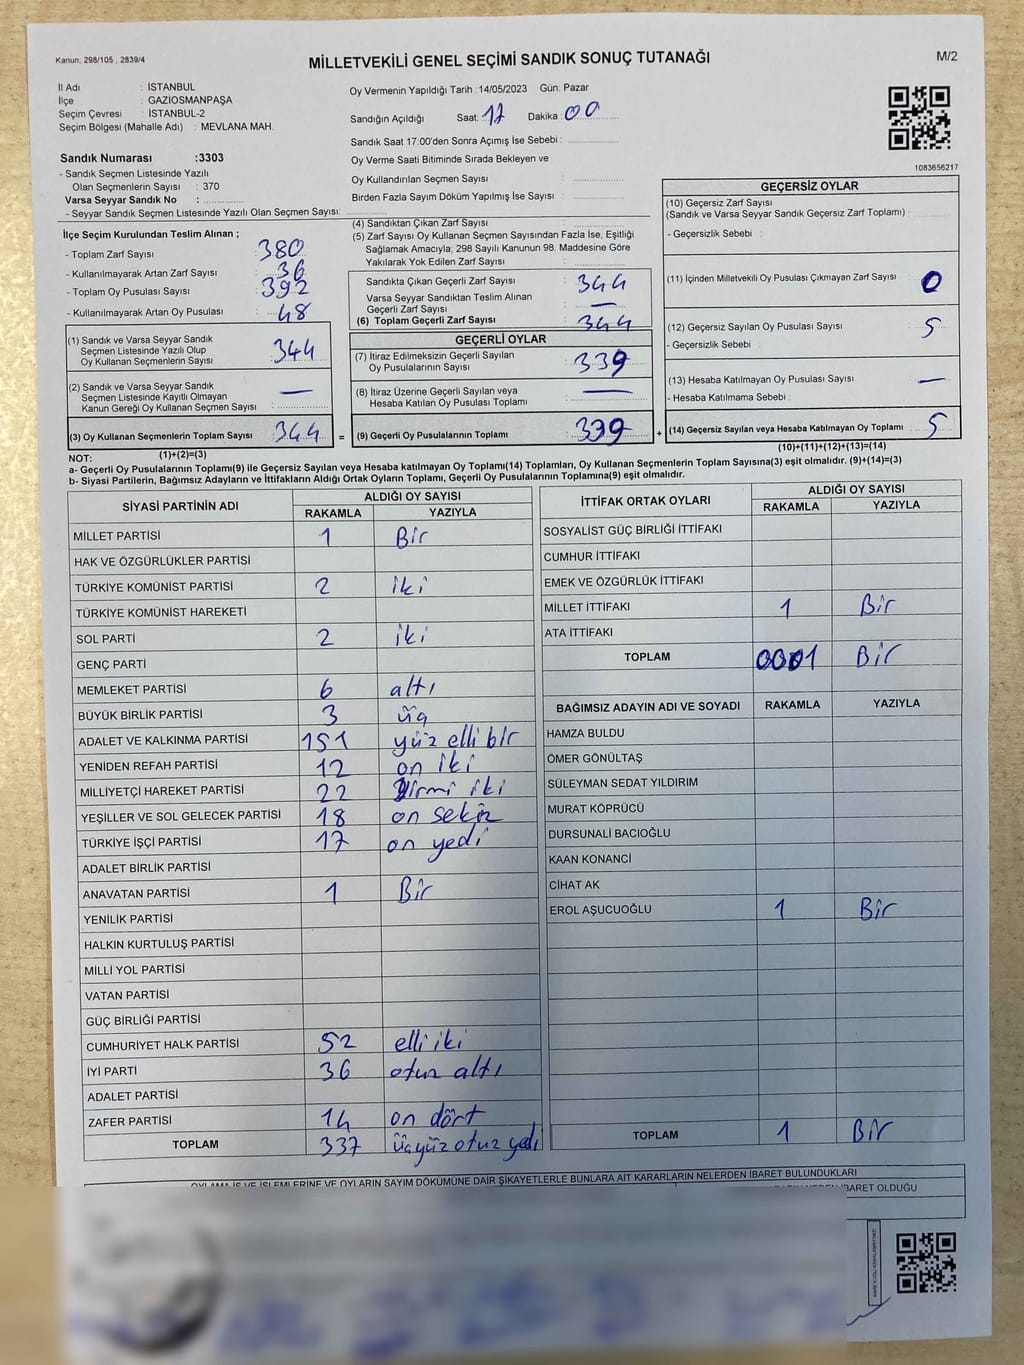 Kanun; 298/105 , 2839/4
MİLLETVEKİLİ GENEL SEÇİMİ SANDIK SONUÇ TUTANAĞI
M/2
İl Adı : İSTANBUL
İlçe : GAZİOSMANPAŞA
Seçim Çevresi : İSTANBUL-2
Seçim Bölgesi (Mahalle Adı) : MEVLANA MAH.
Oy Vermenin Yapıldığı Tarih :14/05/2023 Gün: Pazar
Sandığın Açıldığı Saat: 17 Dakika: 00
Sandık Saat 17:00'den Sonra Açımış İse Sebebi :
Oy Verme Saati Bitiminde Sırada Bekleyen ve
Oy Kullandırılan Seçmen Sayısı :
Birden Fazla Sayım Döküm Yapılmış İse Sayısı :
1083656217
Sandık Numarası :3303
- Sandık Seçmen Listesinde Yazılı
Olan Seçmenlerin Sayısı : 370
Varsa Seyyar Sandık No :
- Seyyar Sandık Seçmen Listesinde Yazılı Olan Seçmen Sayısı:
İlçe Seçim Kurulundan Teslim Alınan ;
- Toplam Zarf Sayısı : 380
- Kullanılmayarak Artan Zarf Sayısı : 36
- Toplam Oy Pusulası Sayısı : 392
- Kullanılmayarak Artan Oy Pusulası : 48
(1) Sandık ve Varsa Seyyar Sandık
Seçmen Listesinde Yazılı Olup
Oy Kullanan Seçmenlerin Sayısı : 344
(2) Sandık ve Varsa Seyyar Sandık
Seçmen Listesinde Kayıtlı Olmayan
Kanun Gereği Oy Kullanan Seçmen Sayısı : —
(3) Oy Kullanan Seçmenlerin Toplam Sayısı : 344 =
(1)+(2)=(3)
(4) Sandıktan Çıkan Zarf Sayısı :
(5) Zarf Sayısı Oy Kullanan Seçmen Sayısından Fazla İse, Eşitliği
Sağlamak Amacıyla; 298 Sayılı Kanunun 98. Maddesine Göre
Yakılarak Yok Edilen Zarf Sayısı :
Sandıkta Çıkan Geçerli Zarf Sayısı : 344
Varsa Seyyar Sandıktan Teslim Alınan
Geçerli Zarf Sayısı : —
(6) Toplam Geçerli Zarf Sayısı : 344
GEÇERLİ OYLAR
(7) İtiraz Edilmeksizin Geçerli Sayılan
Oy Pusulalarının Sayısı : 339
(8) İtiraz Üzerine Geçerli Sayılan veya
Hesaba Katılan Oy Pusulası Toplamı : —
(9) Geçerli Oy Pusulalarının Toplamı : 339 +
GEÇERSİZ OYLAR
(10) Geçersiz Zarf Sayısı
(Sandık ve Varsa Seyyar Sandık Geçersiz Zarf Toplamı) :
- Geçersizlik Sebebi :
(11) İçinden Milletvekili Oy Pusulası Çıkmayan Zarf Sayısı : 0
(12) Geçersiz Sayılan Oy Pusulası Sayısı : 5
- Geçersizlik Sebebi :
(13) Hesaba Katılmayan Oy Pusulası Sayısı : —
- Hesaba Katılmama Sebebi :
(14) Geçersiz Sayılan veya Hesaba Katılmayan Oy Toplamı : 5
(10)+(11)+(12)+(13)=(14)
NOT:
a- Geçerli Oy Pusulalarının Toplamı(9) ile Geçersiz Sayılan veya Hesaba katılmayan Oy Toplamı(14) Toplamları, Oy Kullanan Seçmenlerin Toplam Sayısına(3) eşit olmalıdır. (9)+(14)=(3)
b- Siyasi Partilerin, Bağımsız Adayların ve İttifakların Aldığı Ortak Oyların Toplamı, Geçerli Oy Pusulalarının Toplamına(9) eşit olmalıdır.
SİYASİ PARTİNİN ADI
ALDIĞI OY SAYISI
RAKAMLA YAZIYLA
MİLLET PARTİSİ 1 Bir
HAK VE ÖZGÜRLÜKLER PARTİSİ
TÜRKİYE KOMÜNİST PARTİSİ 2 iki
TÜRKİYE KOMÜNİST HAREKETİ
SOL PARTİ 2 iki
GENÇ PARTİ
MEMLEKET PARTİSİ 6 altı
BÜYÜK BİRLİK PARTİSİ 3 üç
ADALET VE KALKINMA PARTİSİ 151 yüz elli bir
YENİDEN REFAH PARTİSİ 12 on iki
MİLLİYETÇİ HAREKET PARTİSİ 22 Yirmi iki
YEŞİLLER VE SOL GELECEK PARTİSİ 18 on sekiz
TÜRKİYE İŞÇİ PARTİSİ 17 on yedi
ADALET BİRLİK PARTİSİ
ANAVATAN PARTİSİ 1 Bir
YENİLİK PARTİSİ
HALKIN KURTULUŞ PARTİSİ
MİLLİ YOL PARTİSİ
VATAN PARTİSİ
GÜÇ BİRLİĞİ PARTİSİ
CUMHURİYET HALK PARTİSİ 52 elli iki
İYİ PARTİ 36 otuz altı
ADALET PARTİSİ
ZAFER PARTİSİ 14 on dört
TOPLAM 337 üçyüz otuz yedi
İTTİFAK ORTAK OYLARI
ALDIĞI OY SAYISI
RAKAMLA YAZIYLA
SOSYALİST GÜÇ BİRLİĞİ İTTİFAKI
CUMHUR İTTİFAKI
EMEK VE ÖZGÜRLÜK İTTİFAKI
MİLLET İTTİFAKI 1 Bir
ATA İTTİFAKI
TOPLAM 0001 Bir
BAĞIMSIZ ADAYIN ADI VE SOYADI RAKAMLA YAZIYLA
HAMZA BULDU
ÖMER GÖNÜLTAŞ
SÜLEYMAN SEDAT YILDIRIM
MURAT KÖPRÜCÜ
DURSUNALİ BACIOĞLU
KAAN KONANCİ
CİHAT AK
EROL AŞUCUOĞLU 1 Bir
TOPLAM 1 Bir
OYLAMA İŞ VE İŞLEMLERİNE VE OYLARIN SAYIM DÖKÜMÜNE DAİR ŞİKAYETLERLE BUNLARA AİT KARARLARIN NELERDEN İBARET BULUNDUKLARI
İBARET OLDUĞU